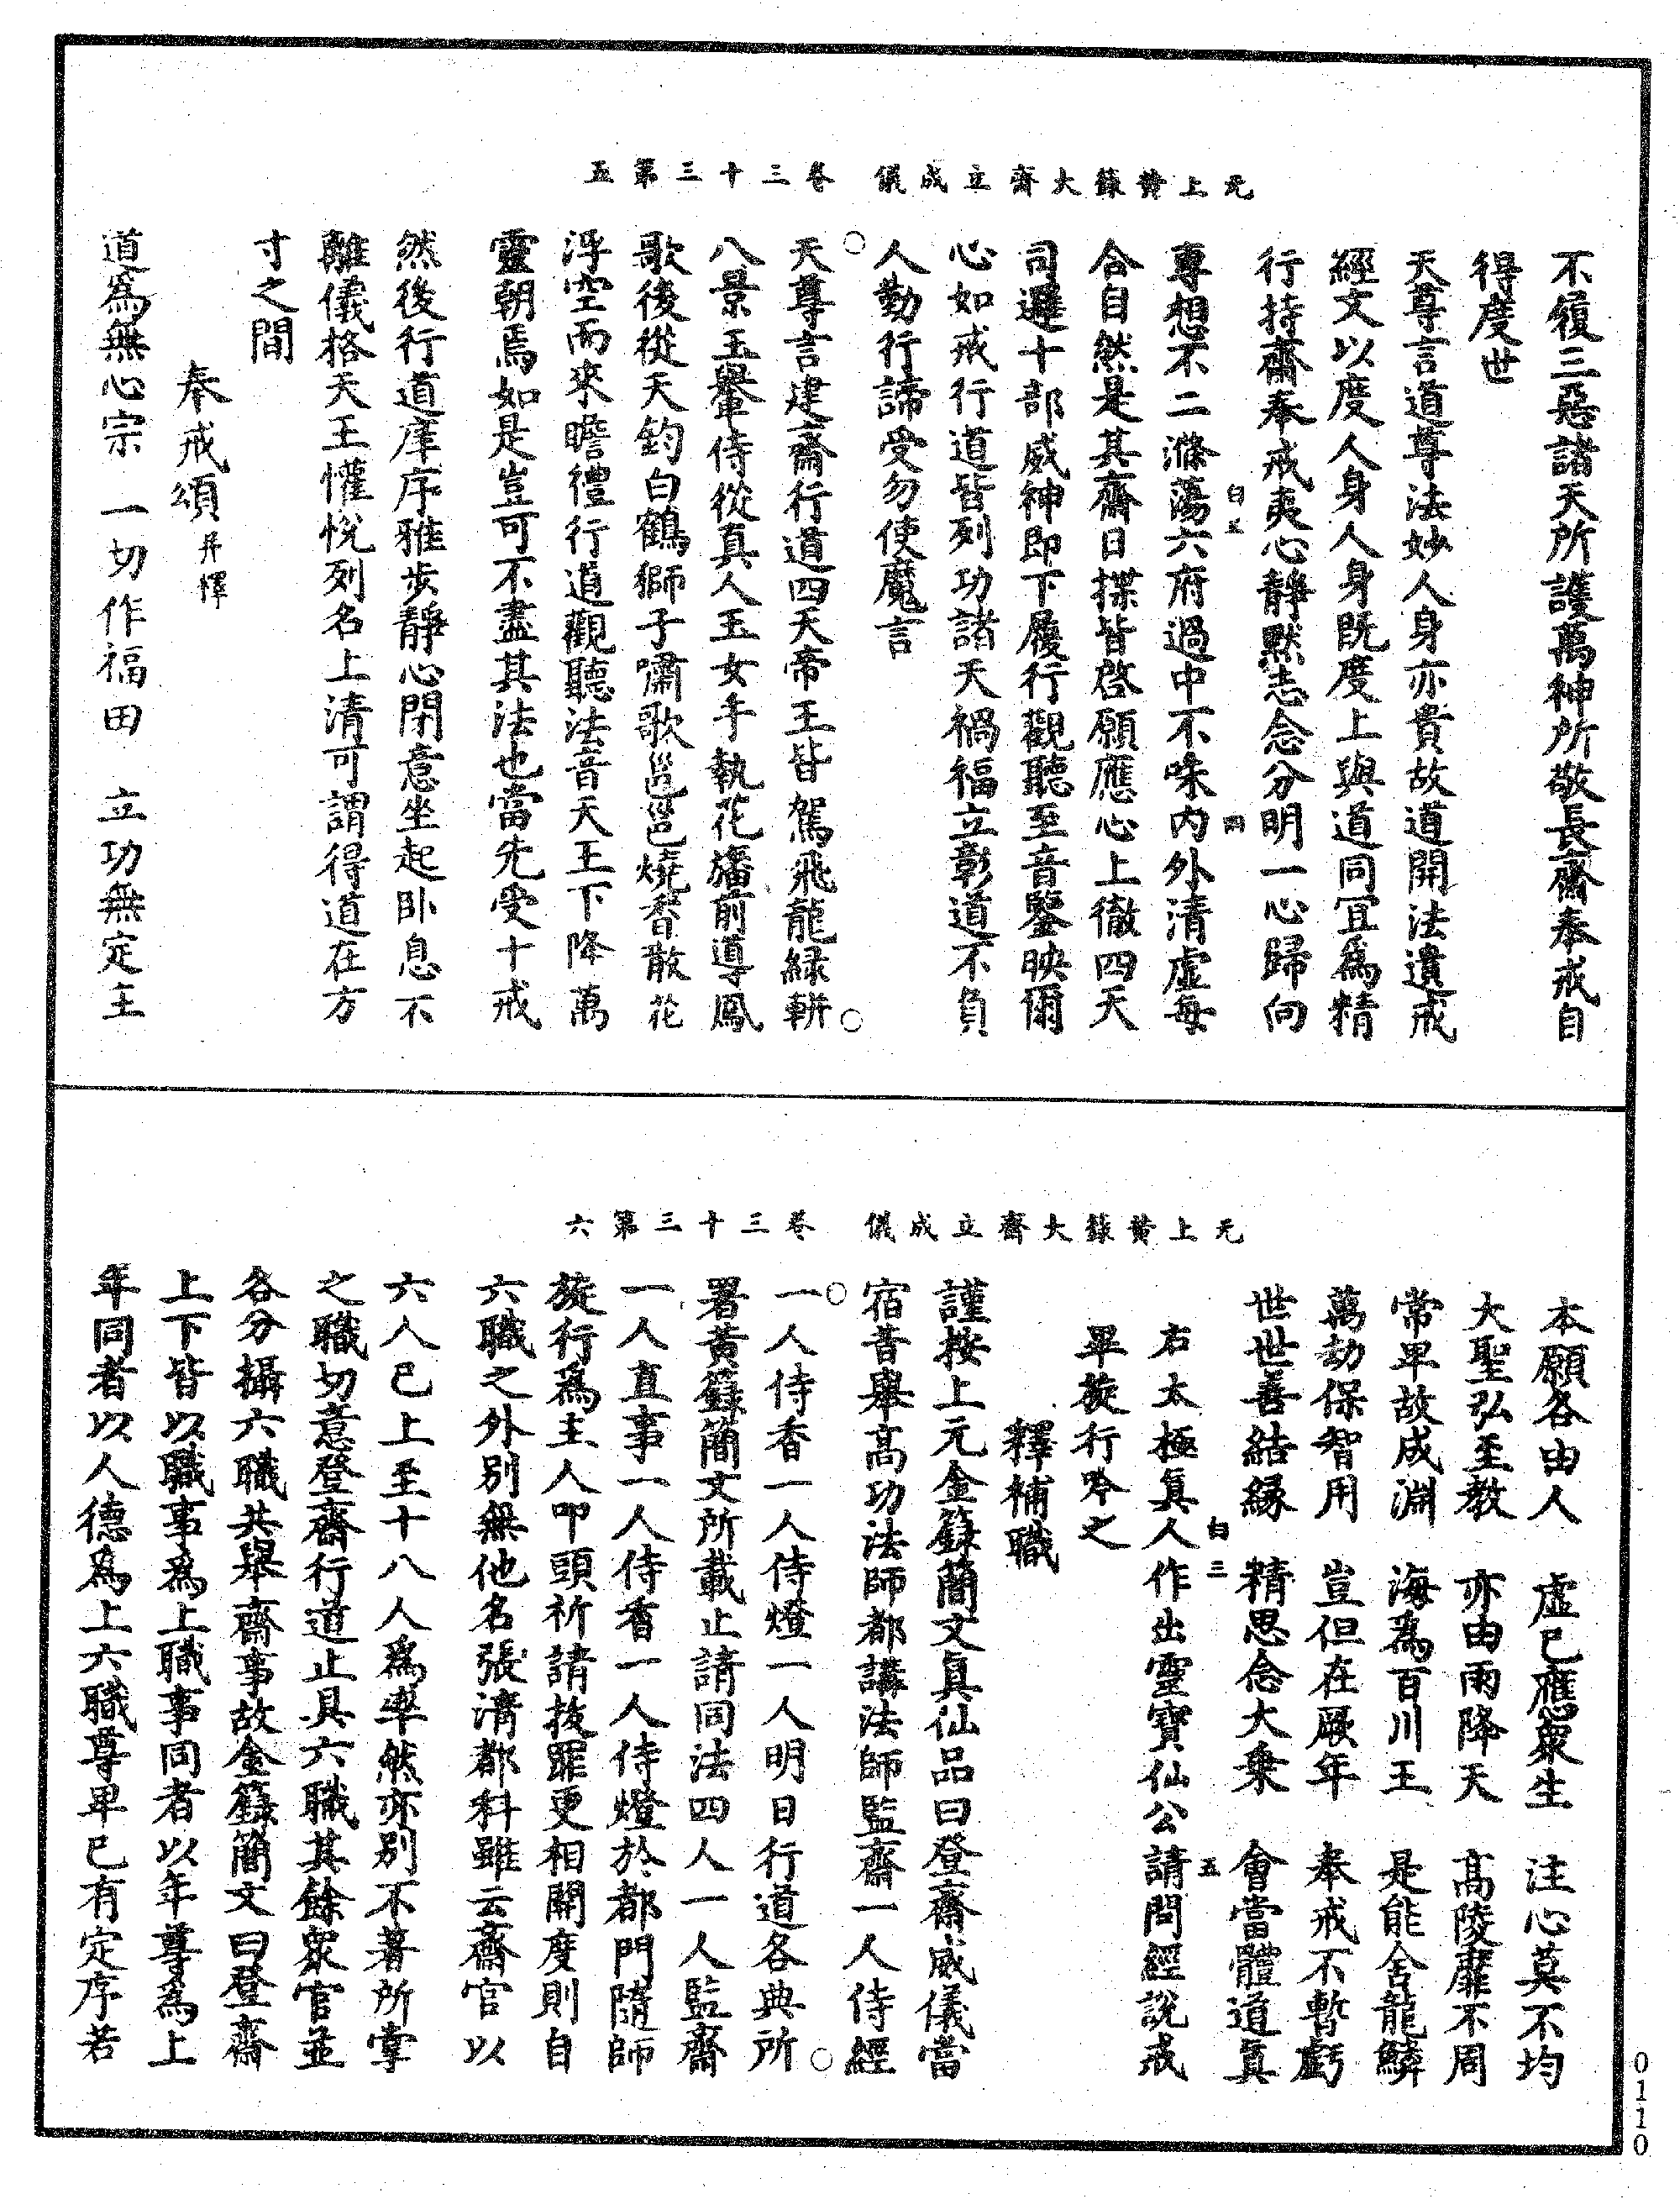 元上黄籙大齋立成儀　卷三十三第五
不履三惡諸天所護萬神所敬長齋奉戒自
得度世
天尊言道尊法妙人身亦貴故道開法遺戒
經文以度人身人身既度上與道同冝爲精
行持齋奉戒夷心靜默志念分明一心歸向
專想不二滌蕩六府過中不味内外清虛每
合自然是其齋日撲皆啓願應心上徹四天
司遷十部威神即下履行觀聽至音鑒映爾
心如戒行道皆列功諸天禍福立彰道不負
人勤行諦受勿使魔言
天尊言建齋行道四天帝王皆駕飛龍緑軿
八景玉轝侍從真人玉女手執花旛前導鳳
歌後從天鈞白鶴獅子嘯歌邕邕燒香散花
浮空而來瞻禮行道觀聽法音天王下降萬
靈朝焉如是豈可不盡其法也當先受十戒
然後行道庠序雅步靜心閉意坐起卧息不
離儀格天王懽悅列名上清可謂得道在方
寸之間
奉戒頌并釋
道爲無心宗　一切作福田　立功無定主
元上黄籙大齋立成儀　卷三十三第六
本願各由人　虛已應衆生　注心莫不均
大聖弘至教　亦由雨降天　高陵靡不周
常卑故成淵　海爲百川王　是能舍龍鱗
萬劫保智用　豈但在厥年　奉戒不暫虧
世世善結縁　精思念大乗　會當體道真
右太極真人作出靈寶仙公請問經說戒
畢旋行吟之
釋補職
謹按上元金籙簡文真仙品曰登齋威儀當
宿昔舉高功法師都講法師監齋一人侍經
一人侍香一人侍燈一人明日行道各典所
署黄籙簡文所載止請同法四人一人監齋
一人直事一人侍香一人侍燈於都門隨師
旋行爲主人叩頭祈請拔罪更相開度則自
六職之外別無他名張清都科雖云齋官以
六人已上至十八人爲率然亦别不著所掌
之職切意登齋行道止具六職其餘衆官並
各分攝六職共舉齋事故金籙簡文曰登齋
上下皆以職事爲上職事同者以年尊爲上
年同者以人德爲上六職尊卑已有定序若
0110